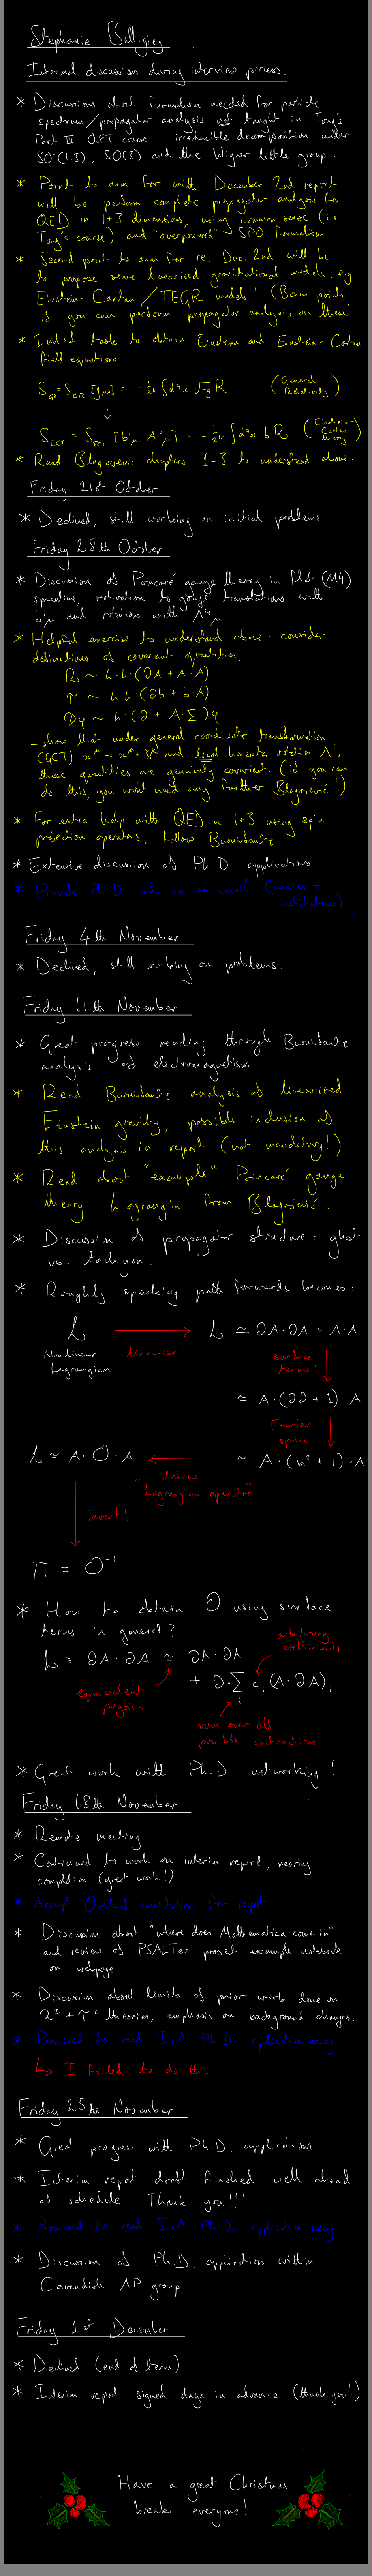 Stephanie Buttigieg
Informal discussions during interview process.
* Discussions about formalism needed for particle
spectrum/propagator analysis not taught in Tong's
Part III QFT course: irreducible decomposition under
SO⁺(1,3), SO(3) and the Wigner little group.
* Point to aim for with December 2nd report
will be perform complete propagator analysis for
QED in 1+3 dimensions, using common sense (i.e.
Tong's course) and "overpowered" SPO formalism.
* Second point to aim for re. Dec. 2nd will be
to propose some linearised gravitational models, e.g.
Einstein-Cartan/TEGR models! (Bonus points
if you can perform propagator analysis on these!
* Initial task to obtain Einstein and Einstein-Cartan
field equations:
S_GR = S_GR [g_μν] = -1/2κ ∫d⁴x √-g R (General Relativity)
↓
S_ECT = S_ECT [b^i_μ, A^ij_μ] = -1/2κ ∫d⁴x b R (Einstein-Cartan theory)
* Read Blagojevic chapters 1-3 to understand above.
Friday 21st October
* Declined, still working on initial problems
Friday 28th October
* Discussion of Poincaré gauge theory in flat (M4)
spacetime, motivation to gauge translations with
b^i_μ and rotations with A^ij_μ
* Helpful exercise to understand above: consider
definitions of covariant quantities,
R ~ h.h (∂A + A.A)
T ~ h.h (∂b + b.A)
Dφ ~ h (∂ + A.Σ)φ
- show that under general coordinate transformation
(GCT) x^μ → x^μ + ξ^μ and local Lorentz rotation Λ^i_j
these quantities are genuinely covariant. (if you can
do this, you wont need any further Blagojević!)
* For extra help with QED in 1+3 using spin
projection operators, follow Buoninfante
* Extensive discussion of Ph.D. applications
* Provide Ph.D. info in an email
Friday 4th November
* Declined, still working on problems.
Friday 11th November
* Great progress reading through Buoninfante
analysis of electromagnetism
* Read Buoninfante analysis of linearised
Einstein gravity, possible inclusion of
this analysis in report (not mandatory!)
* Read about "example" Poincaré gauge
theory Lagrangian from Blagojević.
* Discussion of propagator structure: ghost
vs. tachyon.
* Roughly speaking path forwards becomes:
L → L ≃ ∂A·∂A + A·A
Nonlinear
Lagrangian
linearise!
surface
terms!
≃ A·(∂∂+1)·A
Fourier
space
L ≃ A·O·A ← ≃ A·(k²+1)·A
define
"Lagrangian operator"
invert!
Π ≡ O⁻¹
* How to obtain O using surface
terms in general?
arbitrary
coefficients
L = ∂A·∂A ≃ ∂A·∂A
+ ∂·Σ_i c_i (A·∂A)_i
equivalent
physics
sum over all
possible contractions
* Great work with Ph.D. networking!
Friday 18th November
* Remote meeting
* Continued to work on interim report, nearing
completion (great work!)
* Accept Overleaf invitation for report
* Discussion about "where does Mathematica come in"
and review of PSALTer project example notebook
on webpage
* Discussion about limits of prior work done on
R²+T² theories, emphasis on background changes.
* Promised to read IoA Ph.D. application essay
↳ I failed to do this
Friday 25th November
* Great progress with Ph.D. applications.
* Interim report draft finished well ahead
of schedule. Thank you!!!
* Promised to read IoA Ph.D. application essay
* Discussion of Ph.D. applications within
Cavendish AP group.
Friday 1st December
* Declined (end of term)
* Interim report signed days in advance (thank you!)
Have a great Christmas
break everyone!